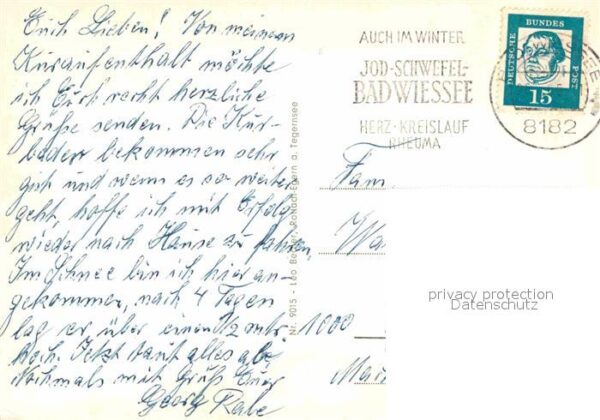 Euch Lieben! Von meinem
Kuraufenthalt möchte
ich Euch recht herzliche
Grüße senden. Die Kur-
bäder bekommen sehr
gut und wenn es so weiter
geht, hoffe ich mit Erfolg
wieder nach Hause zu fahren.
Im Schnee bin ich hier an-
gekommen, nach 4 Tagen
lag er über einen 1/2 mtr.
hoch. Jetzt taut alles ab.
Nochmals mit Gruß Euer
Georg Rabe
Nr. 9015 - Leo Rottach-Egern a. Tegernsee
AUCH IM WINTER
JOD-SCHWEFEL-
BAD WIESSEE
HERZ-KREISLAUF
RHEUMA
DEUTSCHE BUNDES POST
15
8182
Fam
1000
privacy protection
Datenschutz